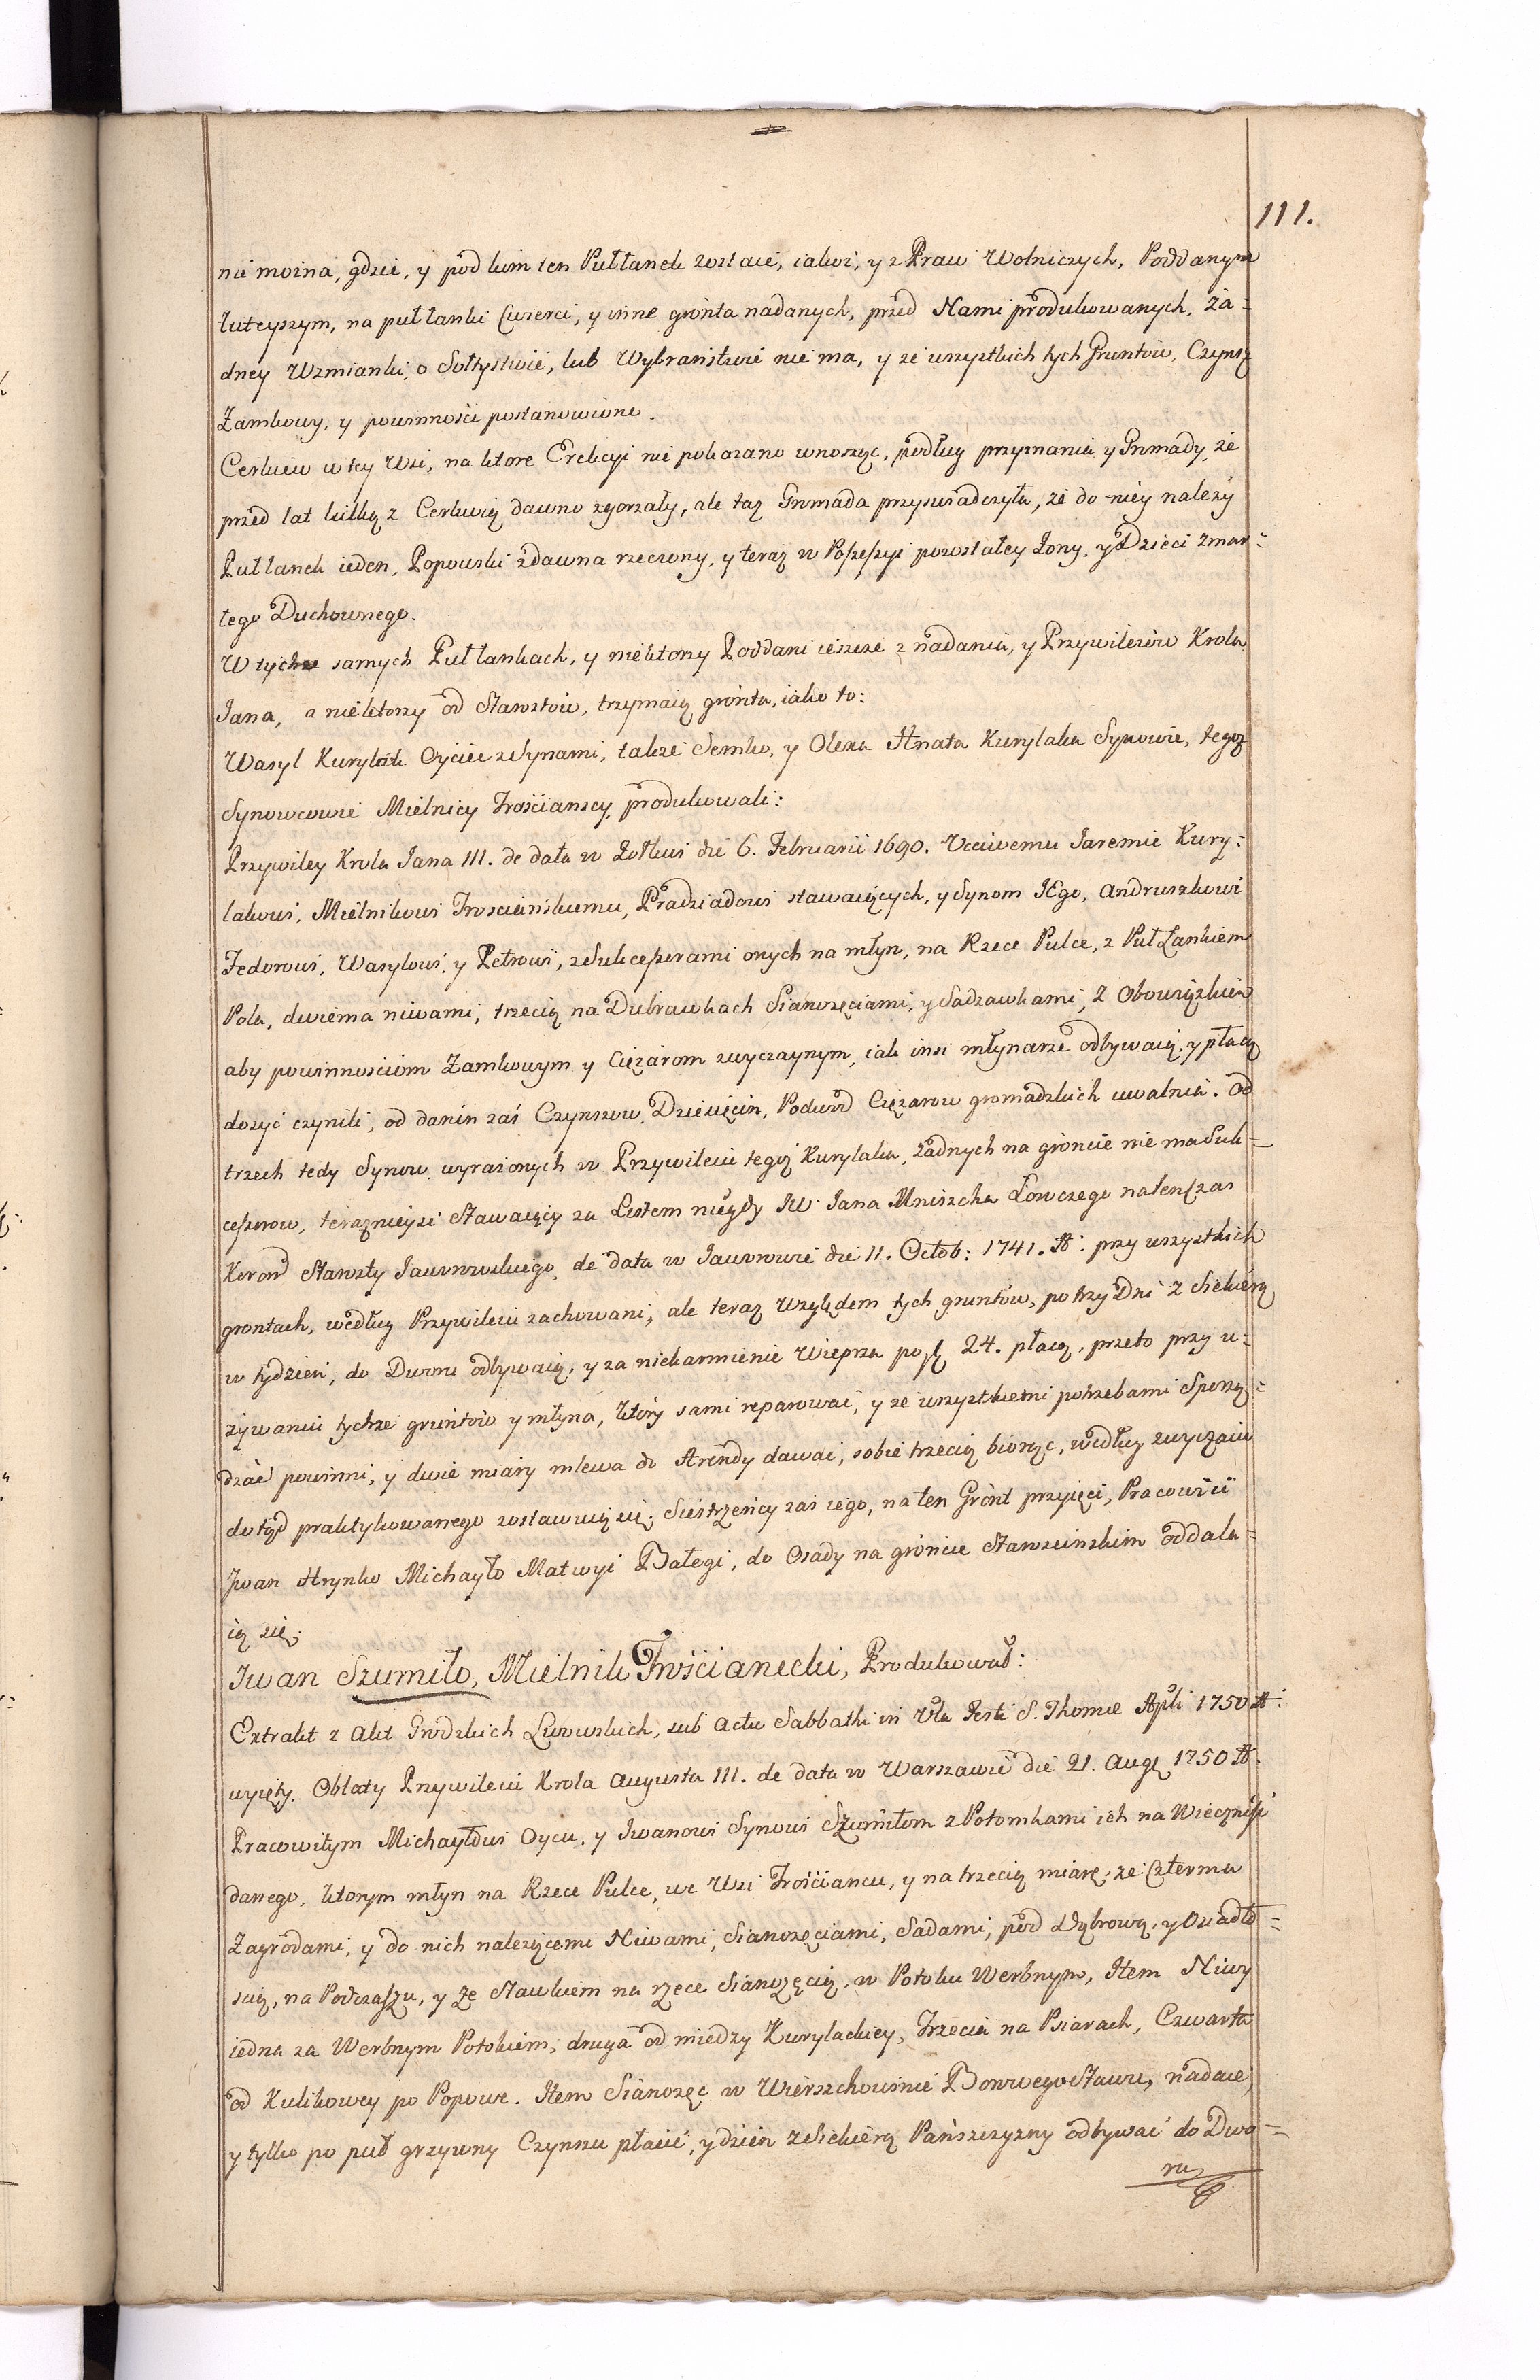 111.
nie można, gdzie, y pod kim ten Pułłanek zostaie, iakoż, y z Praw Wolniczych, Poddanym
tuteyszym, na pułłanki Cwierci, y inne grónta nadanych, przed Nami produkowanych, ża=
dney Wzmianki, o Sołtystwie, lub Wybranistwie nie ma, y ze wszystkich tych Gruntów, Czynsz
Zamkowy, y powinności postanowione.
Cerkiew w tey Wsi, na ktore Erekcyi nie pokazano wnosząc, podług przyznania y Grmady, że
przed lat kilką z Cerkwią dawno zgorzały, ale taż Grmada przyswiadczyła, że do niey należy
Pułłanek ieden, Popowski zdawna rzeczony, y teraz w Possessyi pozostałey Żony, y Dzieci zmar=
łego Duchownego.
W tychże samych Pułłankach, y niektorzy Poddani ieszcze z nadania, y Przywileiów Krola
Jana, a niektorzy od Starostów, trzymaią grónta, iako to:
Wasyl Kuryłak Oyciec z Synami, także Semko, y Olexa Hnata Kurylaka Synowie, tegoż
Synowcowie Mielnicy Trościanscy, produkowali:
Przywiley Krola Jana III. de data w Żołkwi die 6. Februarii 1690. Ucciwemu Jaremie Kury=
lakowi, Mielnikowi Troscieńskiemu, Pradziadowi stawaiących, y Synom JEgo, Andruszkowi
Fedorowi, Wasylowi, y Petrowi, z Sukcessorami onych na młyn, na Rzece Pulce, z Puł Łankiem
Pola, dwiema niwami, trzecią na Dubrawkach Sianożęciami, y Sadzawkami, z Obowiązkiem
aby powinnościom Zamkowym y Ciężarom zwyczaynym, iak insi młynarze odbywaią, y płacą
dosyć czynili, od danin zaś Czynszow, Dziesięcin, Podwod Ciężarow gromadzkich uwalnia. Od
trzech tedy Synow, wyrażonych w Przywileiu tegoż Kurylaka, żadnych na gróncie nie ma Suk=
cessorow, teraznieysi Stawaiący za Listem niegdy JW Jana Mniszcha Łowczego natenczas
Koron Starosty Jaworowskiego, de data w Jaworowie die 11. Octob: 1741. A: przy wszystkich
grontach, według Przywileiu zachowani, ale teraz względem tych gruntów, po trzy Dni z Siekierą
w tydzień, do Dworu odbywaią, y za niekarmienie Wieprza po fl 24. płacą, przeto przy u=
żywaniu tychże gruntów y młyna, ktory sami reparować, y ze wszystkiemi potrzebami Sporzą=
dzać powinni, y dwie miary mlewa do Arędy dawać, sobie trzecią biorąc, według zwyczaiu
dotąd praktykowanego zostawuią się; Siestrzeńcy zaś iego, na ten Grónt przyięci, Pracowici
Jwan Hrynko Michayło Matwyi Bałegi, do Osady na gróncie Starościńskim oddala=
ią się.
Jwan Szumiło, Mielnik Trościanecki, Produkował:
Extrakt z Akt Grodzkich Lwowskich, sub Actu Sabbathi in Vla Festi S. Thomæ Apli 1750 A:
wyięty. Oblaty Przywileiu Krola Augusta III. de data w Warszawie die 21. Aug 1750 A.
Pracowitym Michayłowi Oycu, y Jwanowi Synowi Szumiłom z Potomkami ich na Wieczność
danego, ktorym młyn na Rzece Pulce, we Wsi Trościancu, y na trzecią miarę, ze Czterma
Zagrodami, y do nich należącemi Niwami, Sianożęciami, Sadami, pod Dąbrową, y Osiadło=
scią, na Podzaszu, y ze Stawkiem na rzece Sianożęcią, w Potoku Werbnym, Item Niwy
iedna za Werbnym Potokiem, druga od miedzy Kurylackiey, Trzecia na Psiarach, Czwarta
od Kulikowey po Popowe. Item Sianożęc w Wierszchowinie Borowego Stawu, nadaie,
y tylko po puł grzywny Czynszu płacić, y dzień z Siekierą Pańszczyzny odbywać do Dwo=
ru